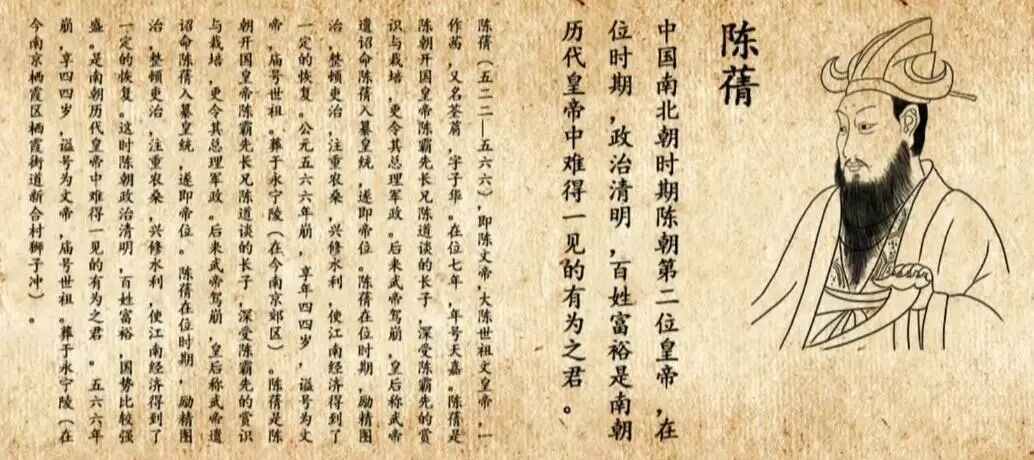 陈蒨
中国南北朝时期陈朝第二位皇帝,在
位时期,政治清明,百姓富裕是南朝
历代皇帝中难得一见的有为之君。
陈蒨(五二二—五六六),即陈文帝,大陈世祖文皇帝,一
作茜,又名荃蒨,字子华。在位七年,年号天嘉。陈蒨是
陈朝开国皇帝陈霸先长兄陈道谈的长子,深受陈霸先的赏
识与栽培,更令其总理军政。后来武帝驾崩,皇后称武帝
遗诏命陈蒨入纂皇统,遂即帝位。陈蒨在位时期,励精图
治,整顿吏治,注重农桑,兴修水利,使江南经济得到了
一定的恢复。公元五六六年崩,享年四四岁,谥号为文
帝,庙号世祖。葬于永宁陵(在今南京郊区)。陈蒨是陈
朝开国皇帝陈霸先长兄陈道谈的长子,深受陈霸先的赏识
与栽培,更令其总理军政。后来武帝驾崩,皇后称武帝遗
诏命陈蒨入纂皇统,遂即帝位。 陈蒨在位时期,励精图
治,整顿吏治,注重农桑,兴修水利,使江南经济得到了
一定的恢复。这时陈朝政治清明,百姓富裕,国势比较强
盛。是南朝历代皇帝中难得一见的有为之君 。 五六六年
崩,享四四岁,谥号为文帝,庙号世祖。葬于永宁陵(在
今南京栖霞区栖霞街道新合村狮子冲)。